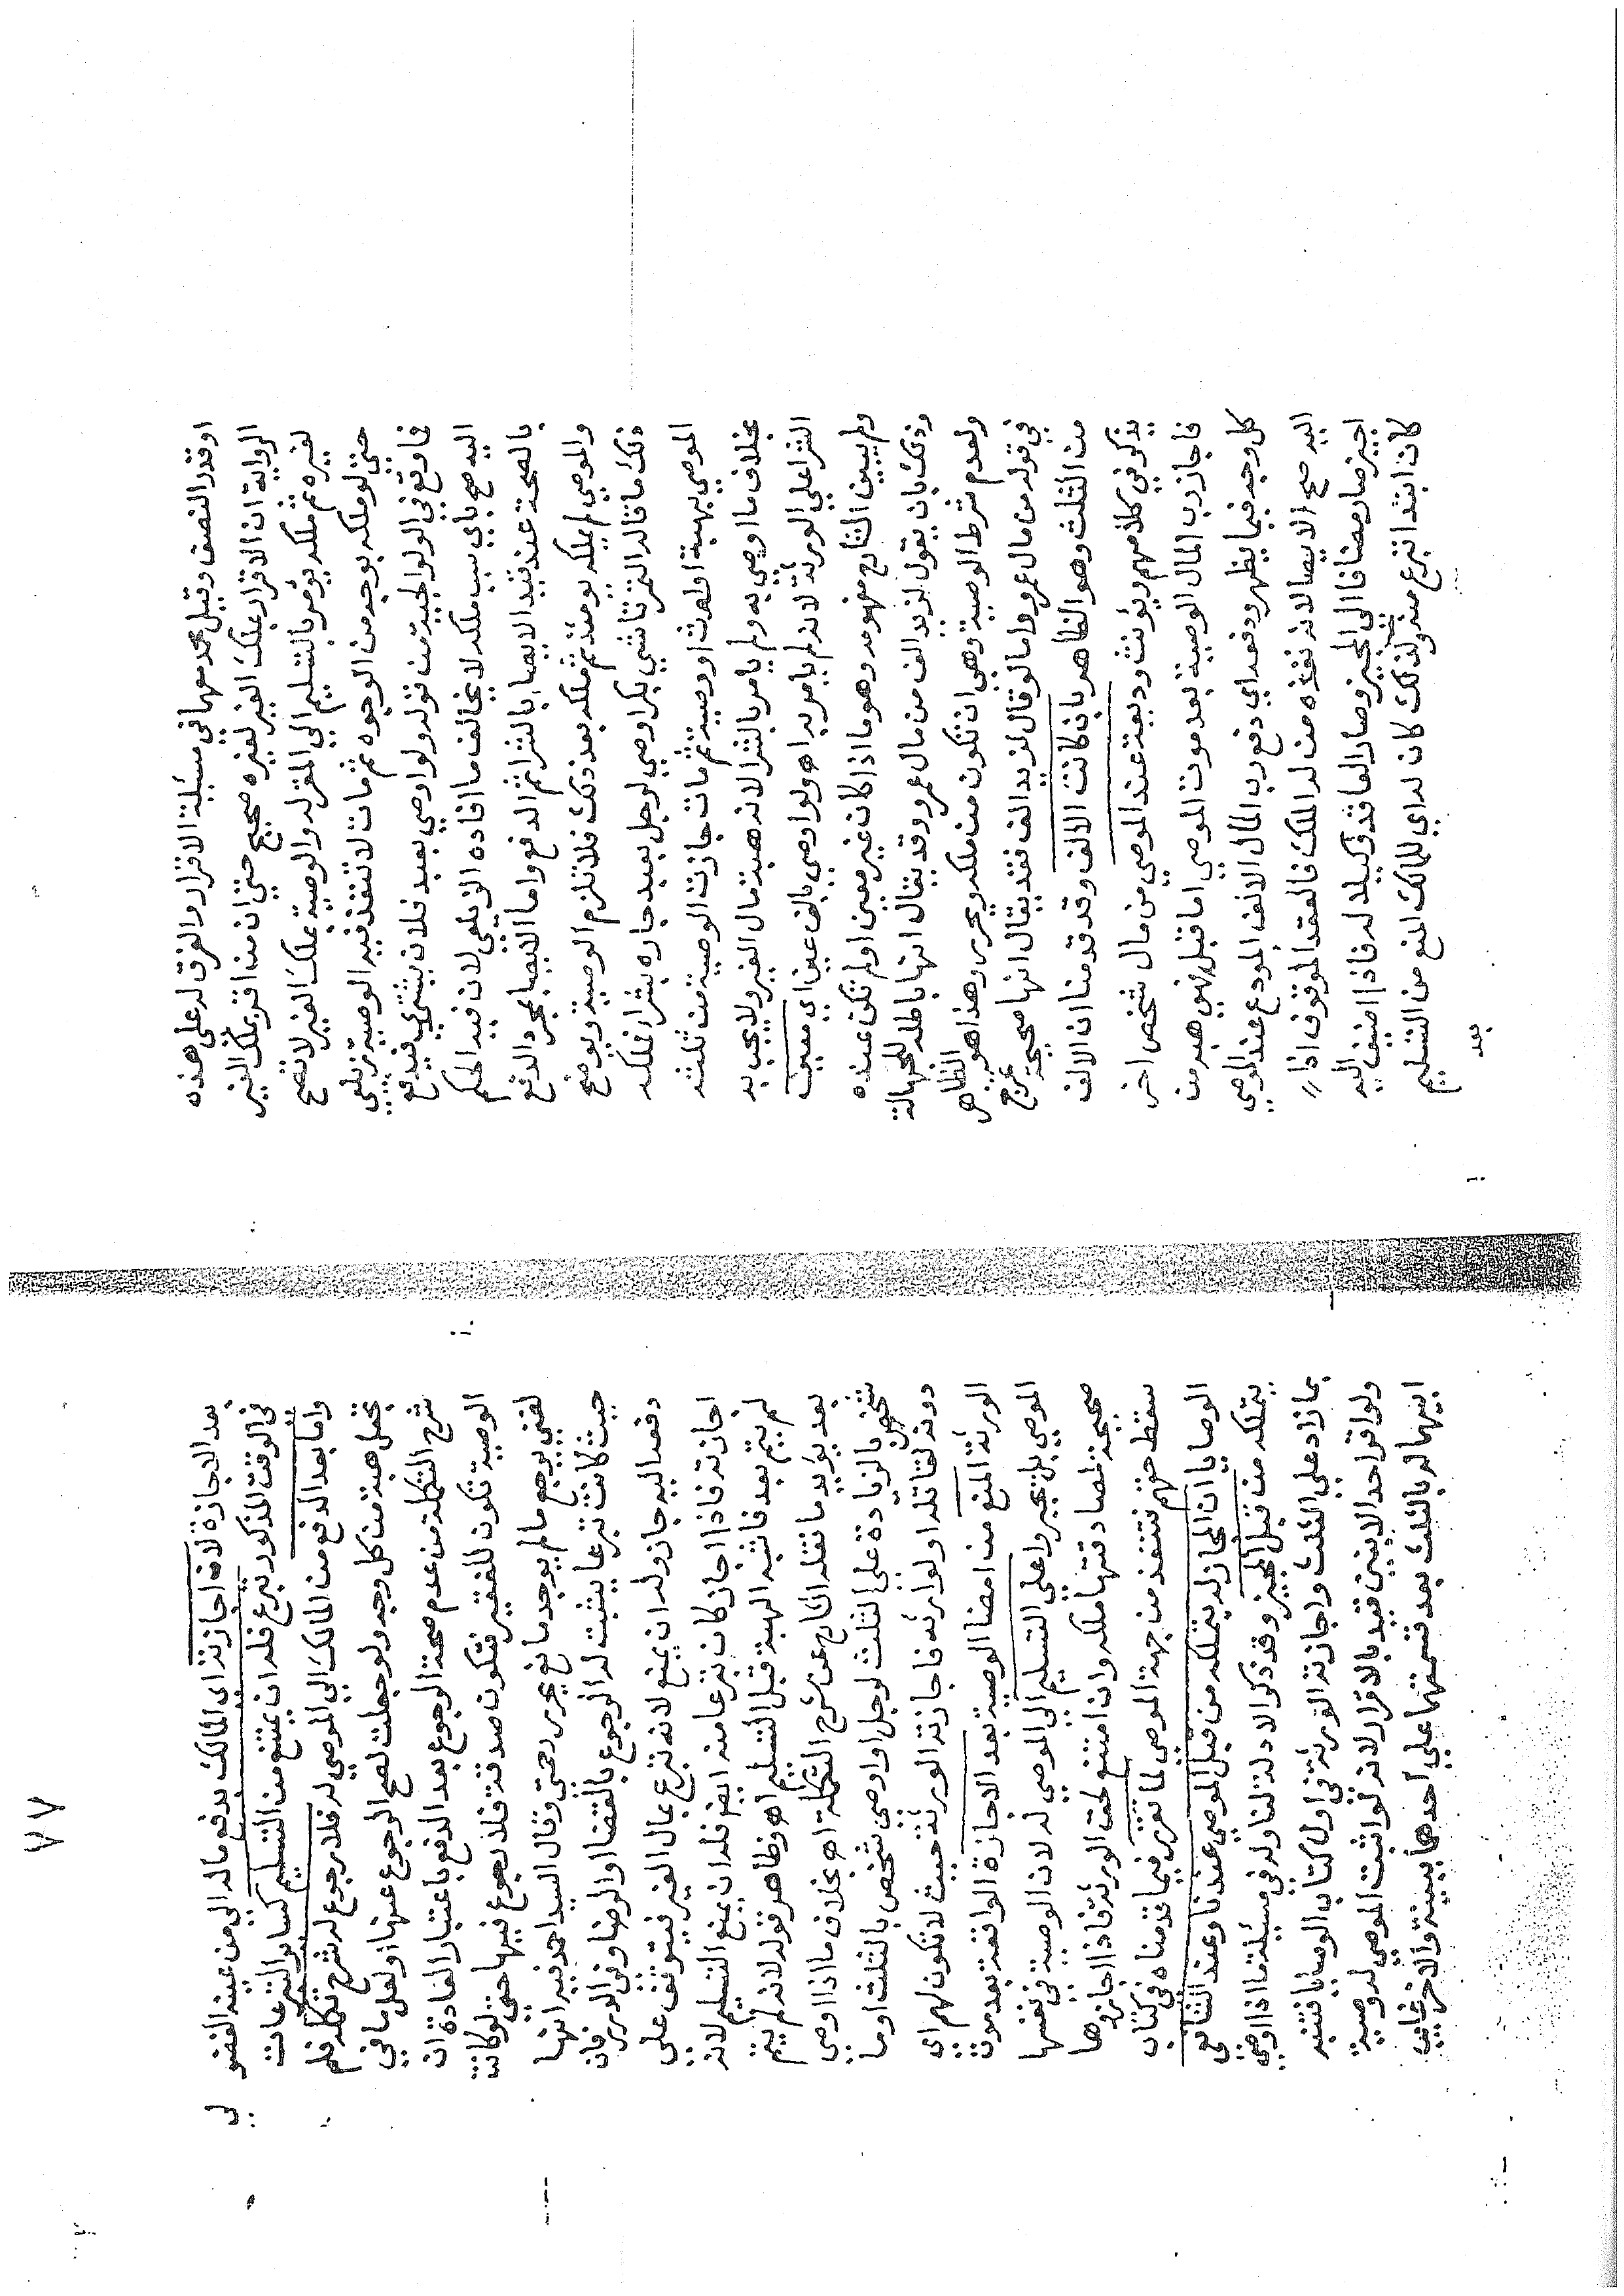 او قدر النصف وقبل محمد معهما في مسئلة الاقرار والفرق له على هذه
الرواية ان الاقرار بملك الغير لغيره صحيح حتى ان من اقر بملك الغير
لغيره ثم ملكه يؤمر بالتسليم الى المقر له والوصية بملك الغير لا تصح
حتى لو ملكه بوجه من الوجوه ثم مات لا تنفذ فيه الوصية زيلعي
فما وقع في الولوالجية من قوله ولو اوصى بعبد فلان يشتري فيدفع
اليه صح باي سبب ملكه لا يخالف ما افاده الزيلعي لان فيه الحكم
بالصحة عند قيد الايصاء بالشراء ثم الدفع واما الايصاء بمجرد الدفع
والموصي لم يملكه يومئذ ثم ملكه بعد ذلك فلا تلزم الوصية ويوضح
ذلك ما قاله التمرتاشي بكر اوصى لرجل بعبد جاره بشراء فملكه
الموصي بهبة او ارث او وصية ثم مات جازت الوصية من ثلثه
بخلاف ما اوصى به ولم يامر بالشرا لانه هبة مال الغير ولا يجب به
الشرا على الورثة لانه لم يامر به اه ولو اوصى بالف عين اي معين
ولم يبين الشارح مفهومه وهو ما اذا كان غير معين او لم تكن عنده
وذلك بان يقول لزيد الف من مال عمرو وقد يقال انها باطلة للجهالة
ولعدم شرط الوصية وهي ان تكون من ملكه ويحرر وهذا هو الظاهر
في قوله من مال عمرو واما لو قال لزيد الف فقد يقال انها صحيحة تخرج
من الثلث وهو الظاهر بان كانت الالف وقد قدمنا ان الالف
يذكر في كلامهم ويؤنث وديعة عند الموصي من مال شخص اخر
فاجاز رب المال الوصية بعد موت الموصي اما قبل فهي هبة من
كل وجه فيما يظهر ودفعه اي دفع رب المال الالف المودع عند الموصي
اليه صح الايصا لانه نفذه من له الملك فالعقد الموقوف اذا
اجيز صار مضافا الى المجيز وصار العاقد وكيلا له فاذا اضيف اليه
كان ابتدا تبرع منه ولذلك كان له اي للمالك المنع من التسليم
بعد
٧٧
بعد الاجازة لانه اجازته اي المالك بدفع ماله الى من عينه الفضولي
في الوقت المذكور تبرع فله ان يمتنع من التسليم كسائر التبرعات
واما بعد الدفع من المالك الى الموصى له فلا رجوع له شرح تكملة فلم
تجعل هبة من كل وجه ولو جعلت لصح الرجوع عنها ولعل ما في
شرح التكملة من عدم صحة الرجوع بعد الدفع باعتبار العادة ان
الوصية تكون للفقير فتكون صدقة فلا رجوع فيها حتى لو كانت
لغني يرجع ما لم يوجد مانع يحرر رحمتي وقال السيد احمد فيه انها
حيث كانت تبرعا يثبت له الرجوع بالقضا او الرضا وفي الدرر فان
دفعه اليه جاز وله ان يمنع لانه تبرع بمال الغير فيتوقف على
اجازته فاذا اجاز كان تبرعا منه ايضا فله ان يمنع التسليم لانه
لم يتم بعد فاشبه الهبة قبل التسليم اه وظاهر قوله لانه لم يتم
بعد يؤيد ما نقله الشارح عن شرح التكملة اه بخلاف ما اذا اوصى
شخص بالزيادة على الثلث لرجل او اوصى شخص بالثلث او ما
دونه لقاتله او لوارثه فاجازته الورثة حيث لا تكون لهم اي
الورثة المنع من امضا الوصية بعد الاجازة الواقعة بعد موت
الموصي بل يجبروا على التسليم الى الموصى له لان الوصية في نفسها
صحيحة لمصادفتها ملكه وان امتنع لحق الورثة فاذا اجازوها
سقط حقهم فتنفذ من جهة الموصي لما تقرر فيما قدمناه في كتاب
الوصايا ان المجاز له يتملكه من قبل الموصي عندنا وعند الشافعي
يتملكه من قبل المجيز وقد ذكر الادلة لنا وله في مسئلة ما اذا اوصى
بما زاد على الثلث واجازته الورثة في اول كتاب الوصايا فتنبه
ولو اقر احد الابنين قيد بالاقرار لانه لو اثبت الموصى له وصية
ابيهما له بالثلث بعد قسمتهما على احدهما ببينة والاخر غائب